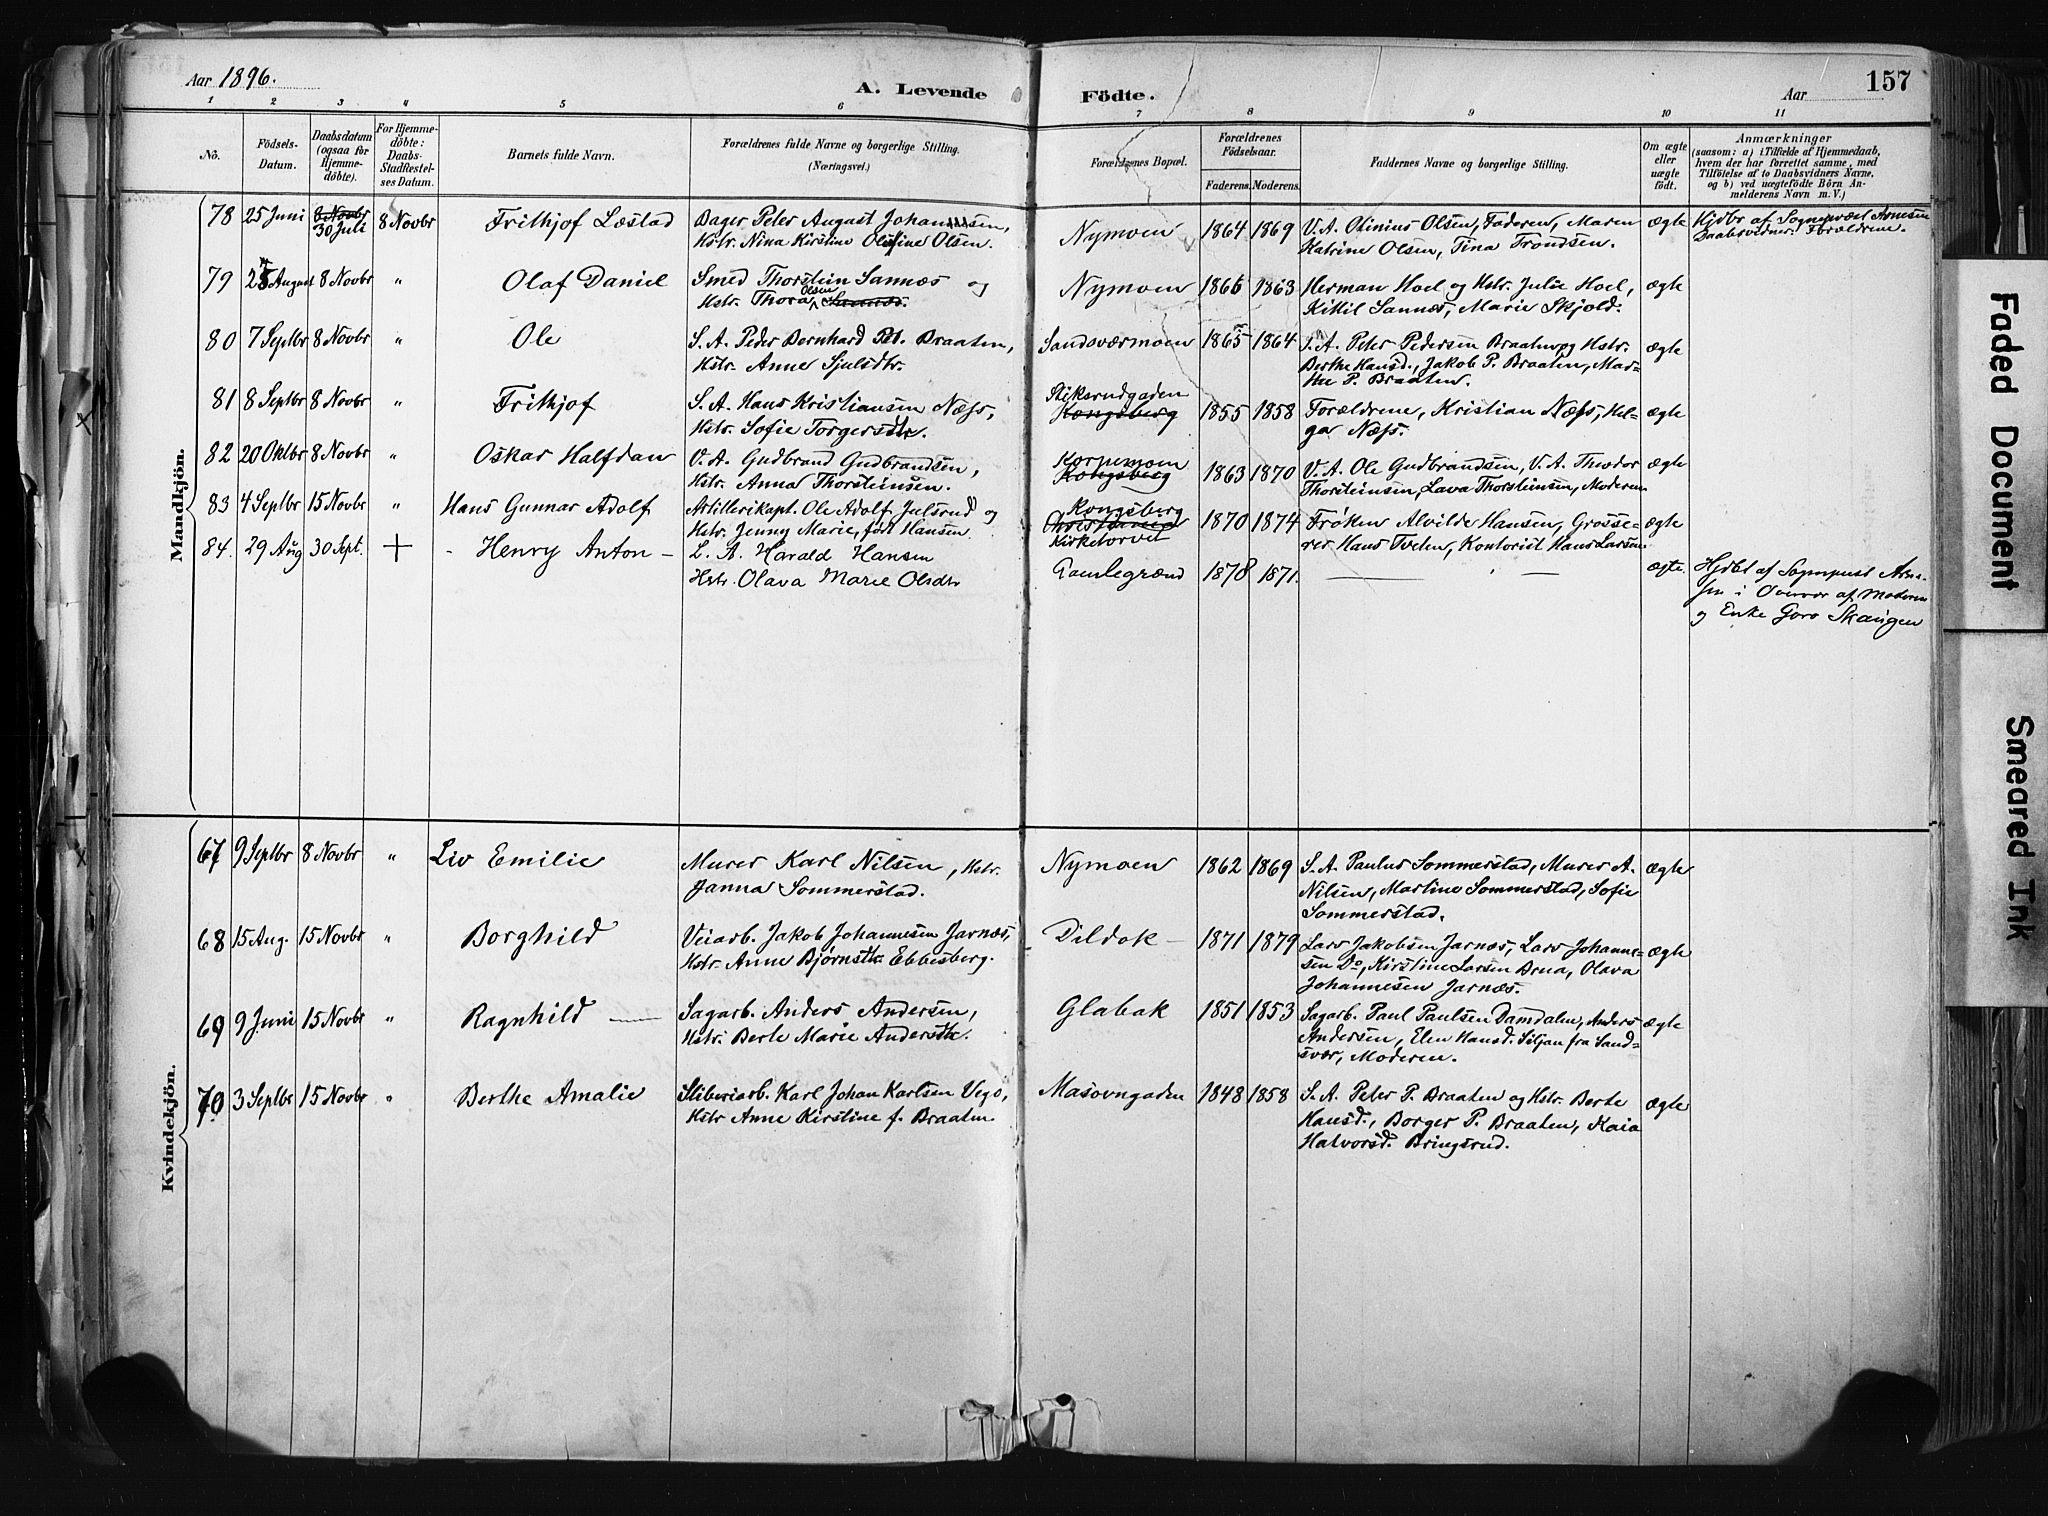 Aar 1896.
A. Levende Födte.
Aar
157
1 2 3 4 5 6 7 8 9 10 11
No.
Födsels-Datum.
Daabsdatum (ogsaa for Hjemmedöbte).
For Hjemmedöbte: Daabs-Stadfæstelses Datum.
Barnets fulde Navn.
Forældrenes fulde Navne og borgerlige Stilling.
(Næringsvei.)
Forældrenes Bopæl.
Forældrenes Födselsaar.
Faderens. Moderens.
Faddernes Navne og borgerlige Stilling.
Om ægte eller uægte födt.
Anmærkninger
(saasom: a) i Tilfælde af Hjemmedaab,
hvem der har forrettet samme, med
Tilföielse af to Daabsvidners Navne,
og b) ved uægtefödte Börn Anmelderens Navn m. V.)
Mandkjön.
78 25 Juni 8 Novbr 30 Juli 8 Novbr Frithjof Læstad Bager Peter August Johansen, Nymoen 1864 1869 V. A. Otinius Olsen, Faderen, Maren ægte Hjdbt af Sognepræst Arnesen
Hstr. Nina Kirstine Olsine Olsen. Katrine Olsen, Tina Trondsen. Daabsvidner: Forældrene.
79 25 August 8 Novbr " Olaf Daniel Smed Thorstein Sannæs og Nymoen 1866 1863 Herman Hoel og Hstr. Julie Hoel, ægte
Hstr. Thora Olsen Sannæs. Kittil Sannæs, Marie Skjold.
80 7 Septbr 8 Novbr " Ole S. A. Peder Bernhard Pet. Braaten, Sandsværmoen 1865 1864 S. A. Peter Pedersen Braaten og Hstr. ægte
Hstr. Anne Sjulsdtr. Berthe Hansd., Jakob P. Braaten, Marthe P. Braaten.
81 8 Septbr 8 Novbr " Frithjof S. A. Hans Kristiansen Næss, Stiksrudgaden Kongsberg 1855 1858 Forældrene, Kristian Næss, Helgar Næss. ægte
Hstr. Sofie Torgersdtr.
82 20 Oktbr 8 Novbr " Oskar Halfdan V. A. Gudbrand Gudbrandsen, Korpemoen Kongsberg 1863 1870 V. A. Ole Gudbrandsen, V. A. Theodor ægte
Hstr. Anna Thorsteinsen. Thorsteinsen, Lava Thorsteinsen, Moderen
83 4 Septbr 15 Novbr " Hans Gunnar Adolf Artillerikapt. Ole Adolf Julsrud og Kongsberg Kirketorvet 1870 1874 Frøken Alvilde Hansen, Grosse- ægte
Hstr. Jenny Marie, født Hansen rer Hans Tveten, Kontorist Hans Larsen
84. 29 Aug 30 Sept. + - Henry Anton - L. A. Harald Hansen Gamlegrænd 1878 1871. — " — ægte. Hjdbt af Sognepræst Arne-
Hstr. Olava Marie Olsdtr sen i Overvær af Moderen
og Enke Goro Skaugen
Kvindekjön.
67 9 Septbr 8 Novbr " Liv Emilie Murer Karl Nilsen, Hstr. Nymoen 1862 1869 S. A. Paulus Sommerstad, Murer A. ægte
Janna Sommerstad. Nilsen, Martine Sommerstad, Sofie
Sommerstad.
68 15 Aug. 15 Novbr " Borghild Veiarb. Jakob Johannesen Jarnæs, Dildok - 1871 1879 Lars Jakobsen Jarnæs, Lars Johanne- ægte
Hstr. Anne Bjørnsdtr Ebbesberg. sen Do, Kirstine Larsen Brua, Olava
Johannesen Jarnæs.
69 9 Juni 15 Novbr " Ragnhild — Sagarb. Anders Andersen, Glabak 1851 1853 Sagarb. Paul Paulsen Damdalen, Anders ægte
Hstr. Berte Marie Andersdtr. Andersen, Elen Hansd. Siljan fra Sand-
svær, Moderen.
70 3 Septbr 15 Novbr " Berthe Amalie Sliberiarb. Karl Johan Karlsen Vegs, Masovngaden 1848 1858 S. A. Peter P. Braaten og Hstr. Berte ægte
Hstr Anne Kirstine f. Braaten Hansd., Borger P. Braaten, Kaia
Halvorsd. Bringsrud.
Faded Document
Smeared Ink